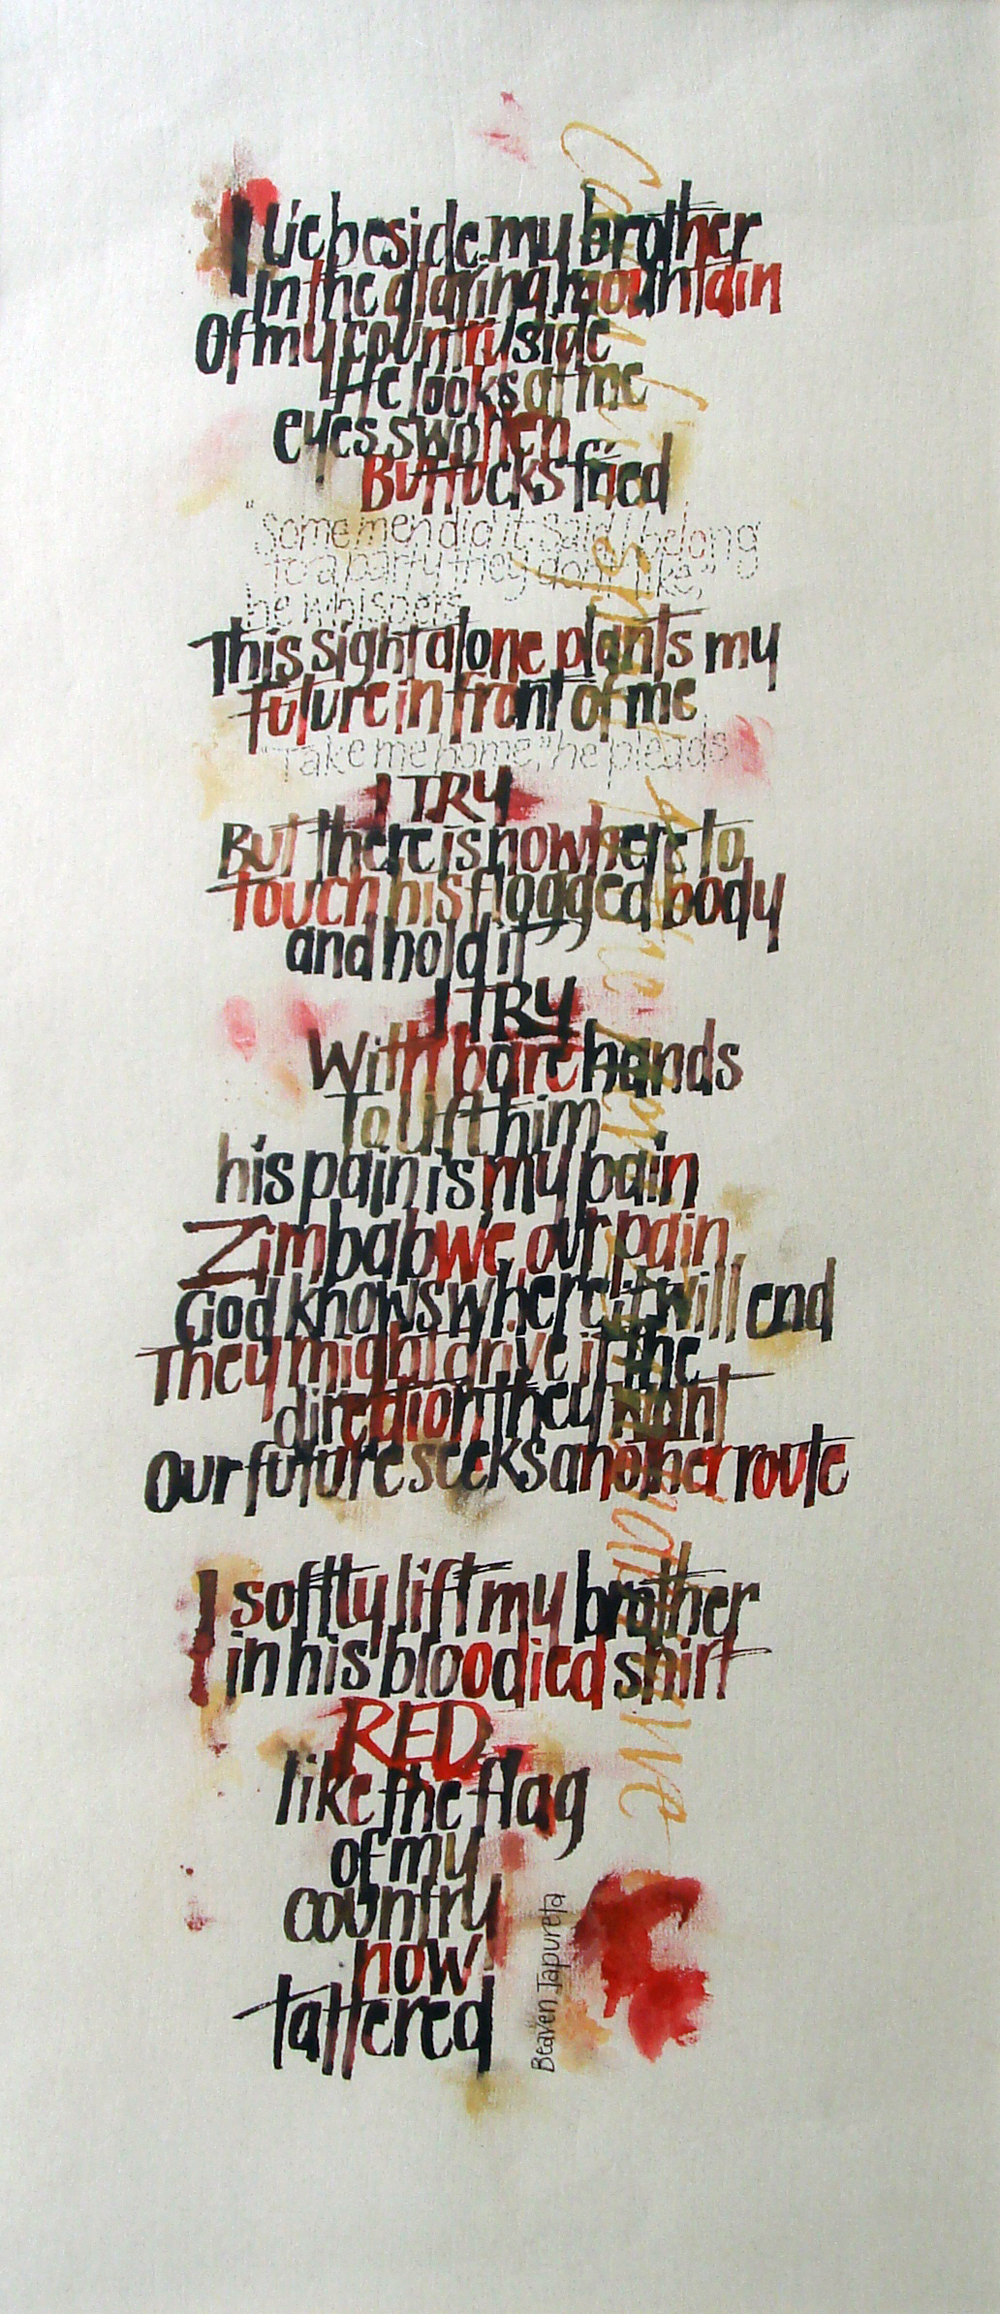 I lie beside my brother
In the glaring mountain
Of my countryside
He looks at me
eyes swollen
Buttocks fried
"Some men did it. Said I belong
to a party they don't like,"
he whispers
This sight alone plants my
future in front of me
"Take me home," he pleads
I TRY
But there is nowhere to
touch his flogged body
and hold it
I TRY
With bare hands
To lift him
his pain is my pain
Zimbabwe our pain
God knows where it will end
They might drive it the
direction they want
Our future seeks another route
I softly lift my brother
in his bloodied shirt
RED
like the flag
of my
country
now
tattered
Beaven Tapureta